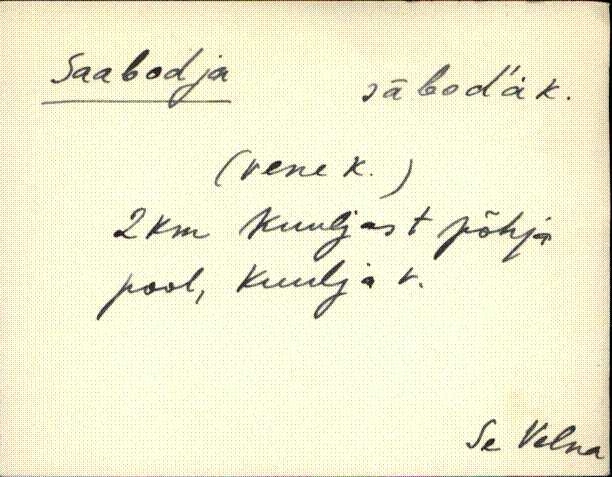 Saabodja
sābod'ȧ k.
(vene k.)
2 km Kuuljast põhja
pool, Kuulja v.
Se Velna